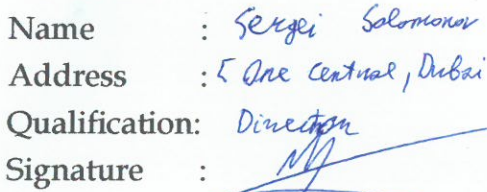 Name : Sergei Solomonov
Address : 5 One Central, Dubai
Qualification: Director
Signature :